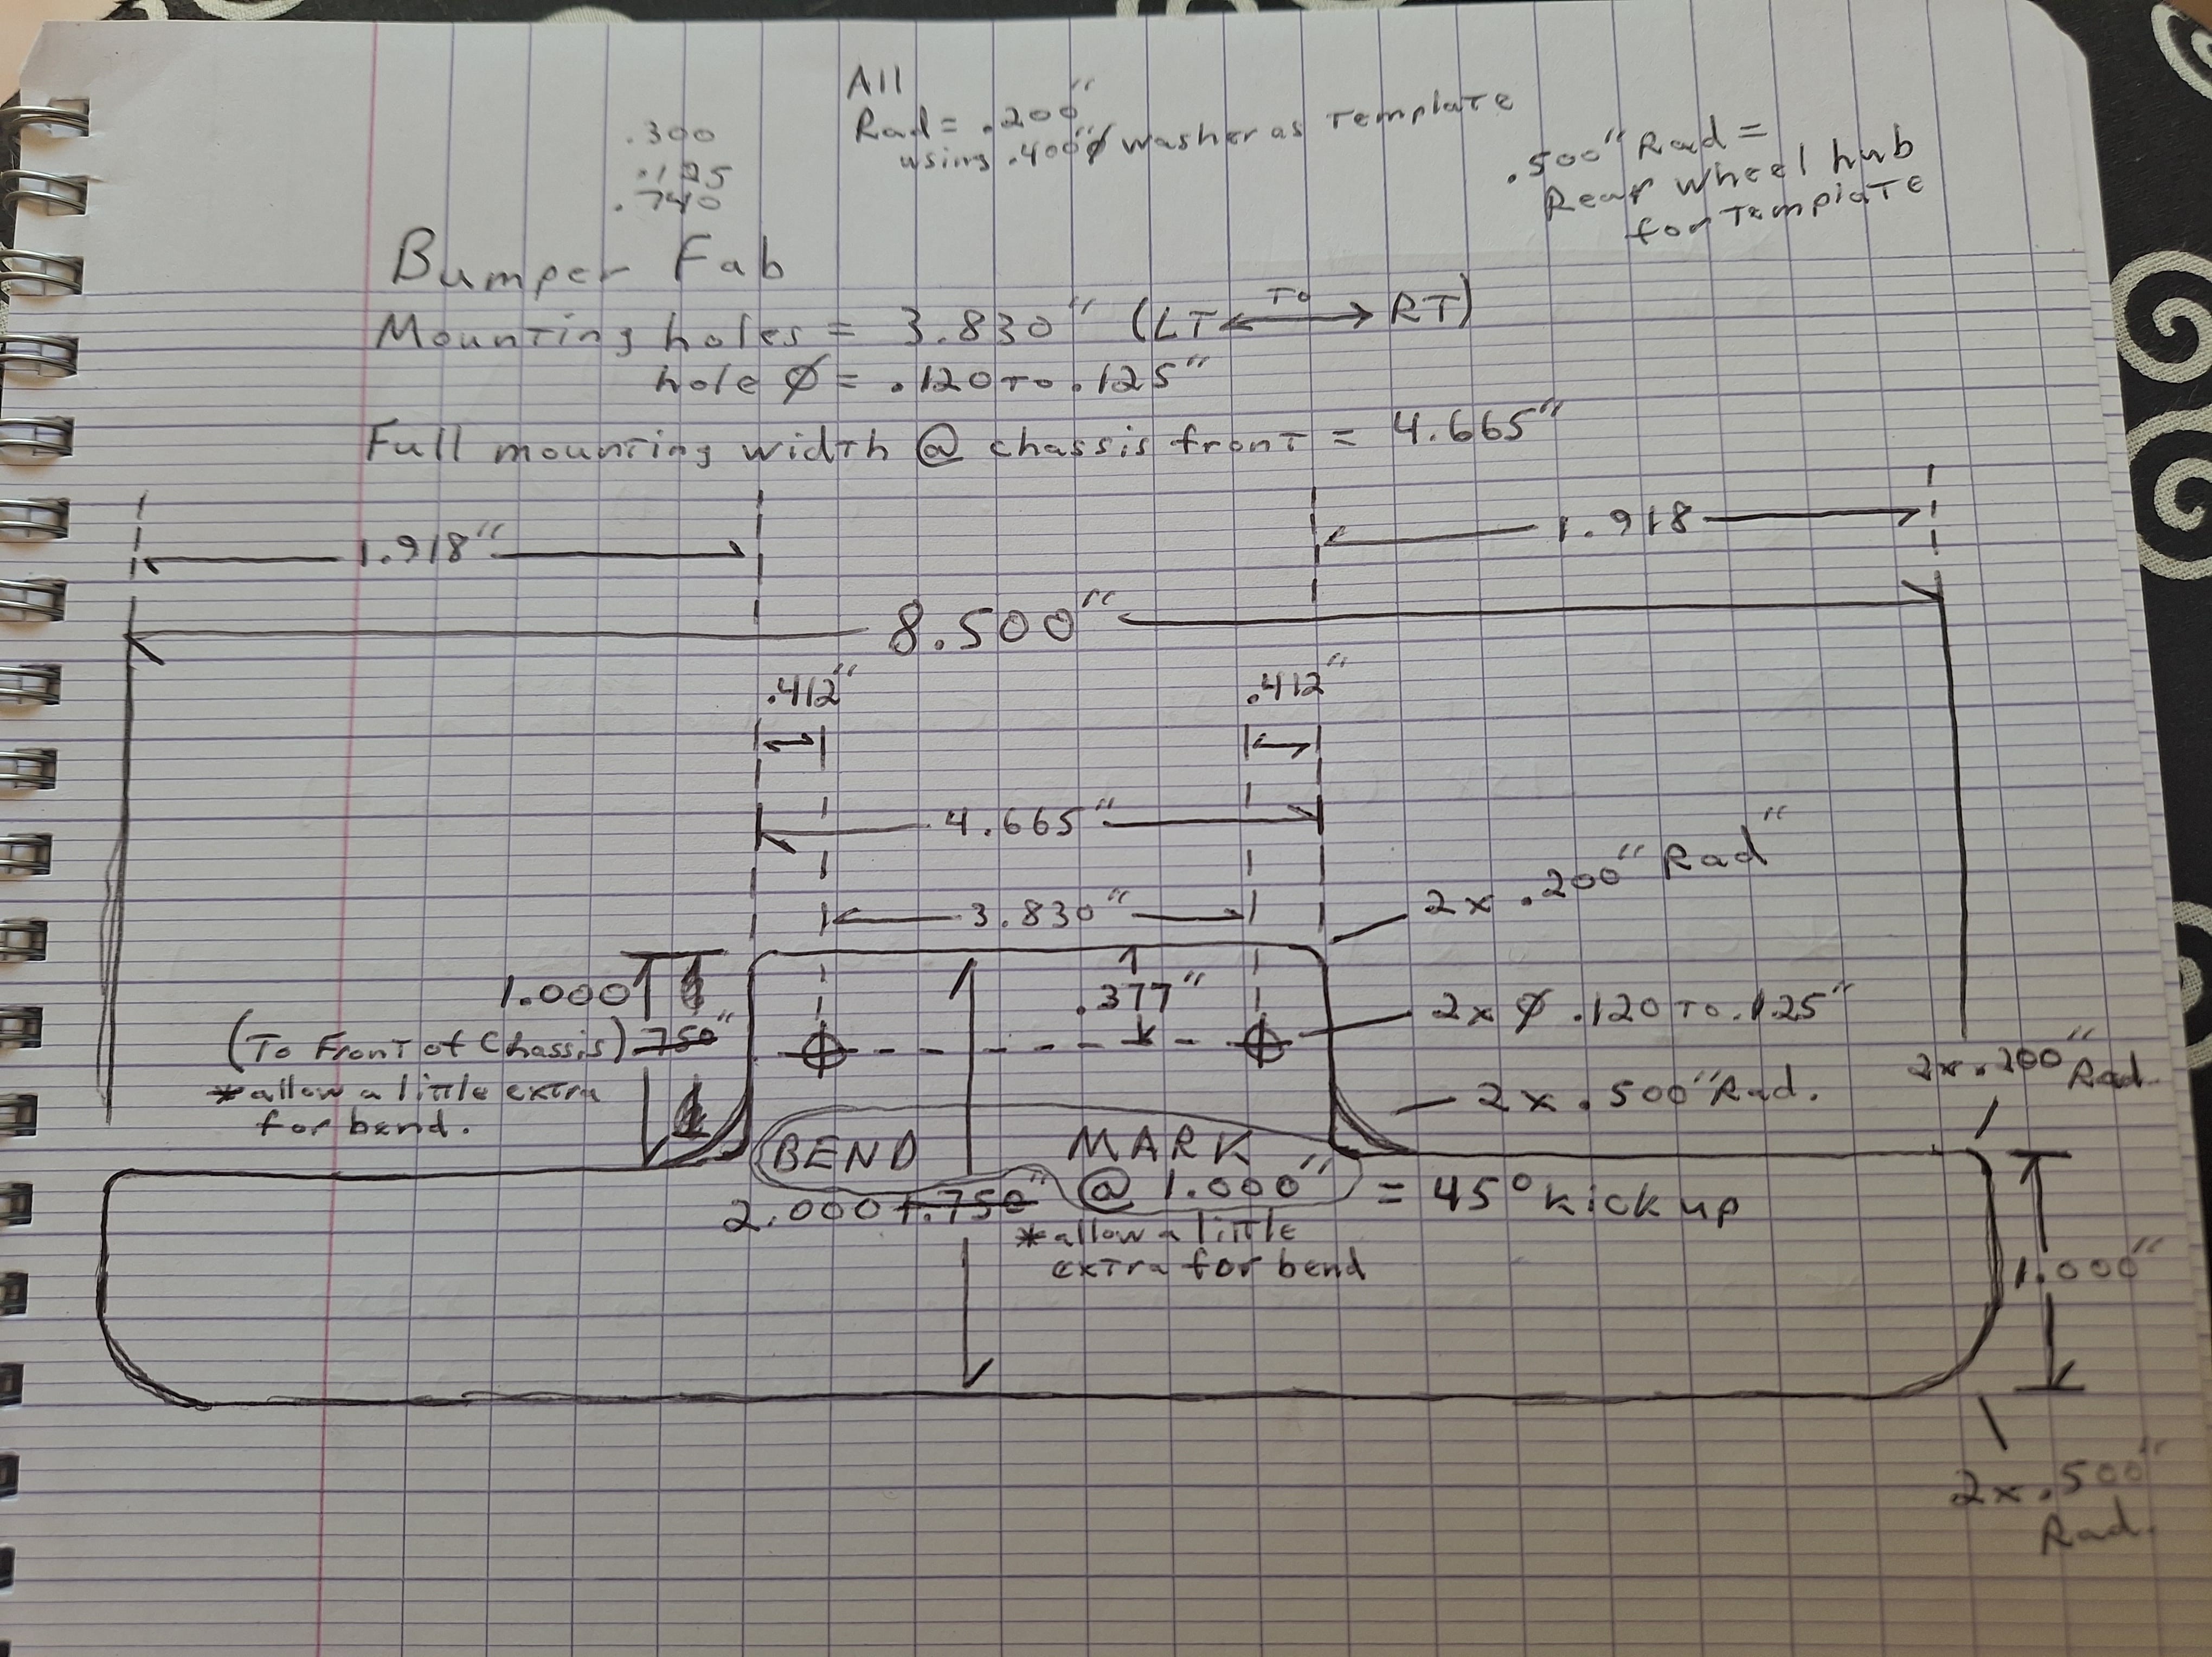 All
Rad = .200"
using .400"∅ washer as Template
.500" Rad =
Rear wheel hub
for Template
.300
.740
Bumper Fab
Mounting holes = 3.830" (LT ←TO→ RT)
hole ∅ = .120 TO .125"
Full mounting width @ chassis front = 4.665"
1.918"
1.918
8.500"
.412"
.412"
4.665"
3.830"
2x .200" Rad"
1.000
.377"
2x ∅ .120 TO .125"
(To Front of Chassis) .750"
*allow a little extra
for bend.
2x .500" Rad.
2x .200" Rad.
BEND MARK
@ 1.000" = 45° kick up
2.000 1.750"
*allow a little
extra for bend
1.000"
2x .500"
Rad.